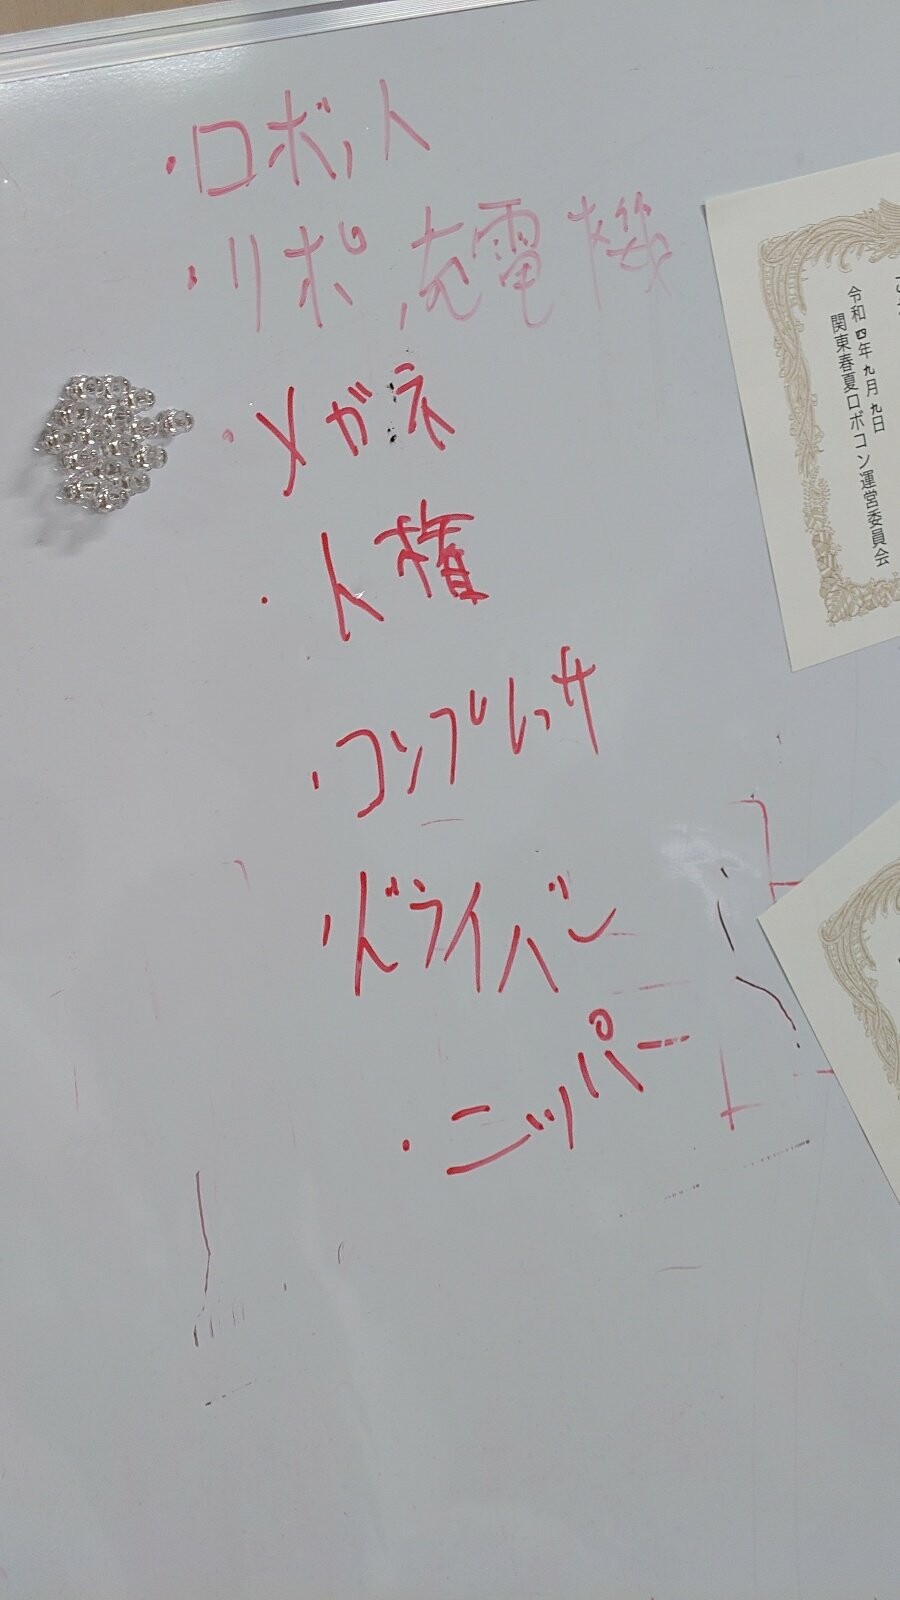 ・ロボット
・リポ充電機
・メガネ
・人権
・コンプレッサ
・ドライバー
・ニッパー
令和四年九月九日
関東春夏ロボコン運営委員会